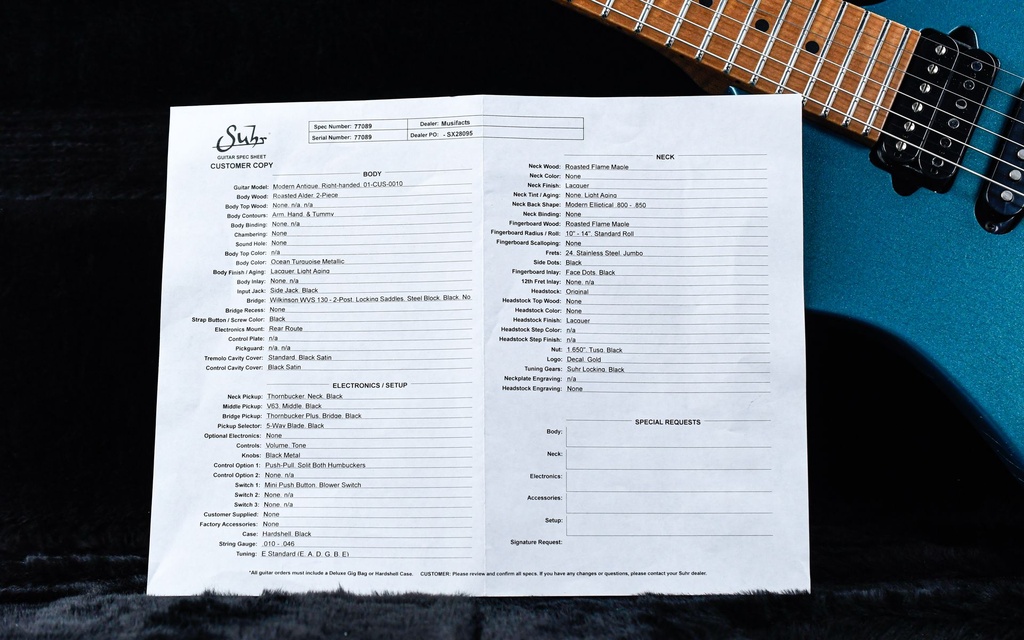 Suhr
GUITAR SPEC SHEET
CUSTOMER COPY
Spec Number: 77089 Dealer: Musifacts
Serial Number: 77089 Dealer PO: - SX28095
BODY
Guitar Model: Modern Antique, Right-handed, 01-CUS-0010
Body Wood: Roasted Alder, 2-Piece
Body Top Wood: None, n/a, n/a
Body Contours: Arm, Hand, & Tummy
Body Binding: None, n/a
Chambering: None
Sound Hole: None
Body Top Color: n/a
Body Color: Ocean Turquoise Metallic
Body Finish / Aging: Lacquer, Light Aging
Body Inlay: None, n/a
Input Jack: Side Jack, Black
Bridge: Wilkinson WVS 130 - 2-Post, Locking Saddles, Steel Block, Black, No
Bridge Recess: None
Strap Button / Screw Color: Black
Electronics Mount: Rear Route
Control Plate: n/a
Pickguard: n/a, n/a
Tremolo Cavity Cover: Standard, Black Satin
Control Cavity Cover: Black Satin
ELECTRONICS / SETUP
Neck Pickup: Thornbucker, Neck, Black
Middle Pickup: V63, Middle, Black
Bridge Pickup: Thornbucker Plus, Bridge, Black
Pickup Selector: 5-Way Blade, Black
Optional Electronics: None
Controls: Volume, Tone
Knobs: Black Metal
Control Option 1: Push-Pull, Split Both Humbuckers
Control Option 2: None, n/a
Switch 1: Mini Push Button, Blower Switch
Switch 2: None, n/a
Switch 3: None, n/a
Customer Supplied: None
Factory Accessories: None
Case: Hardshell, Black
String Gauge: .010 - .046
Tuning: E Standard (E, A, D, G, B, E)
NECK
Neck Wood: Roasted Flame Maple
Neck Color: None
Neck Finish: Lacquer
Neck Tint / Aging: None, Light Aging
Neck Back Shape: Modern Elliptical .800 - .850
Neck Binding: None
Fingerboard Wood: Roasted Flame Maple
Fingerboard Radius / Roll: 10" - 14", Standard Roll
Fingerboard Scalloping: None
Frets: 24, Stainless Steel, Jumbo
Side Dots: Black
Fingerboard Inlay: Face Dots, Black
12th Fret Inlay: None, n/a
Headstock: Original
Headstock Top Wood: None
Headstock Color: None
Headstock Finish: Lacquer
Headstock Step Color: n/a
Headstock Step Finish: n/a
Nut: 1.650", Tusq, Black
Logo: Decal, Gold
Tuning Gears: Suhr Locking, Black
Neckplate Engraving: n/a
Headstock Engraving: None
SPECIAL REQUESTS
Body:
Neck:
Electronics:
Accessories:
Setup:
Signature Request:
*All guitar orders must include a Deluxe Gig Bag or Hardshell Case. CUSTOMER: Please review and confirm all specs. If you have any changes or questions, please contact your Suhr dealer.